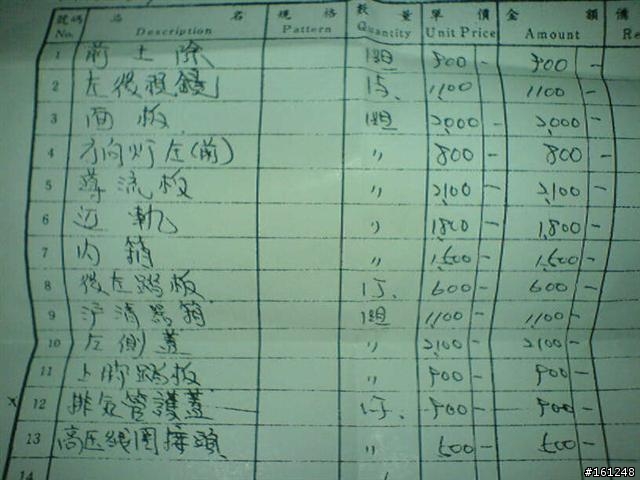 號碼 品 名 規 格 數 量 單 價 金 額 備
No. Description Pattern Quantity Unit Price Amount Re
1 前土除 1組 900 - 900 -
2 左後視鏡 1只 1,100 1100 -
3 面板 1組 2,000 - 2,000 -
4 方向灯左(前) 〃 800 - 800 -
5 導流板 〃 2,100 - 2,100 -
6 边軌 〃 1,800 - 1,800 -
7 內箱 〃 1,500 - 1,500 -
8 後左踏板 1只 600 - 600 -
9 清器箱 1組 1,100 - 1,100 -
10 左側蓋 〃 2,100 - 2,100 -
11 踏板 〃 900 - 900 -
x 12 排气管護蓋 1只 900 - 900 -
13 高压線圈接頭 〃 500 - 500 -
14
#161248